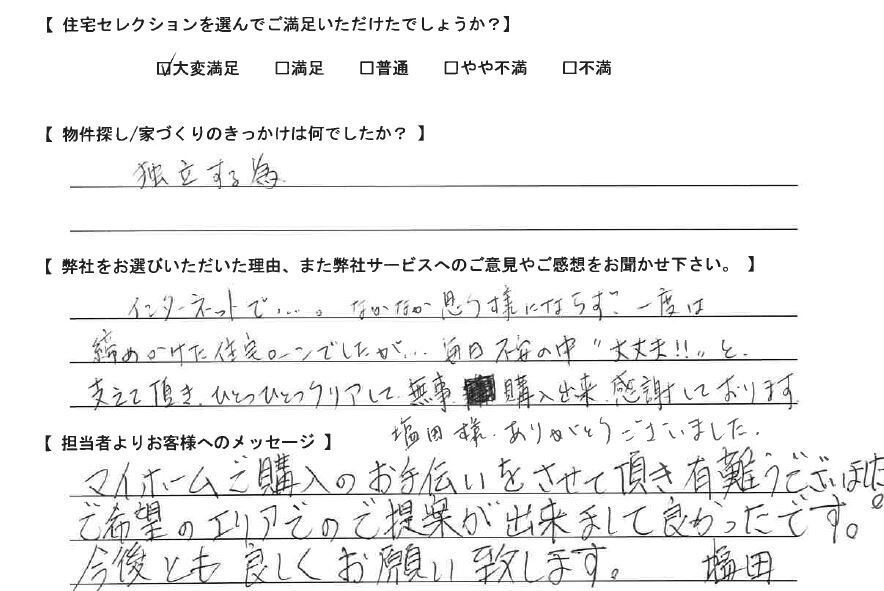 【 住宅セレクションを選んでご満足いただけたでしょうか？】
☑大変満足 □満足 □普通 □やや不満 □不満
【 物件探し/家づくりのきっかけは何でしたか？ 】
独立する為
【 弊社をお選びいただいた理由、また弊社サービスへのご意見やご感想をお聞かせ下さい。 】
インターネットで….。なかなか思う様にならず、一度は
締めかけた住宅ローンでしたが…毎日不安の中“大丈夫!!”と、
支えて頂き、ひとつひとつクリアして、無事 購入出来、感謝しております
塩田様、ありがとうございました。
【 担当者よりお客様へのメッセージ 】
マイホームご購入のお手伝いをさせて頂き有難うございました。
ご希望のエリアでのご提案が出来まして良かったです。
今後とも良しくお願い致します。 塩田